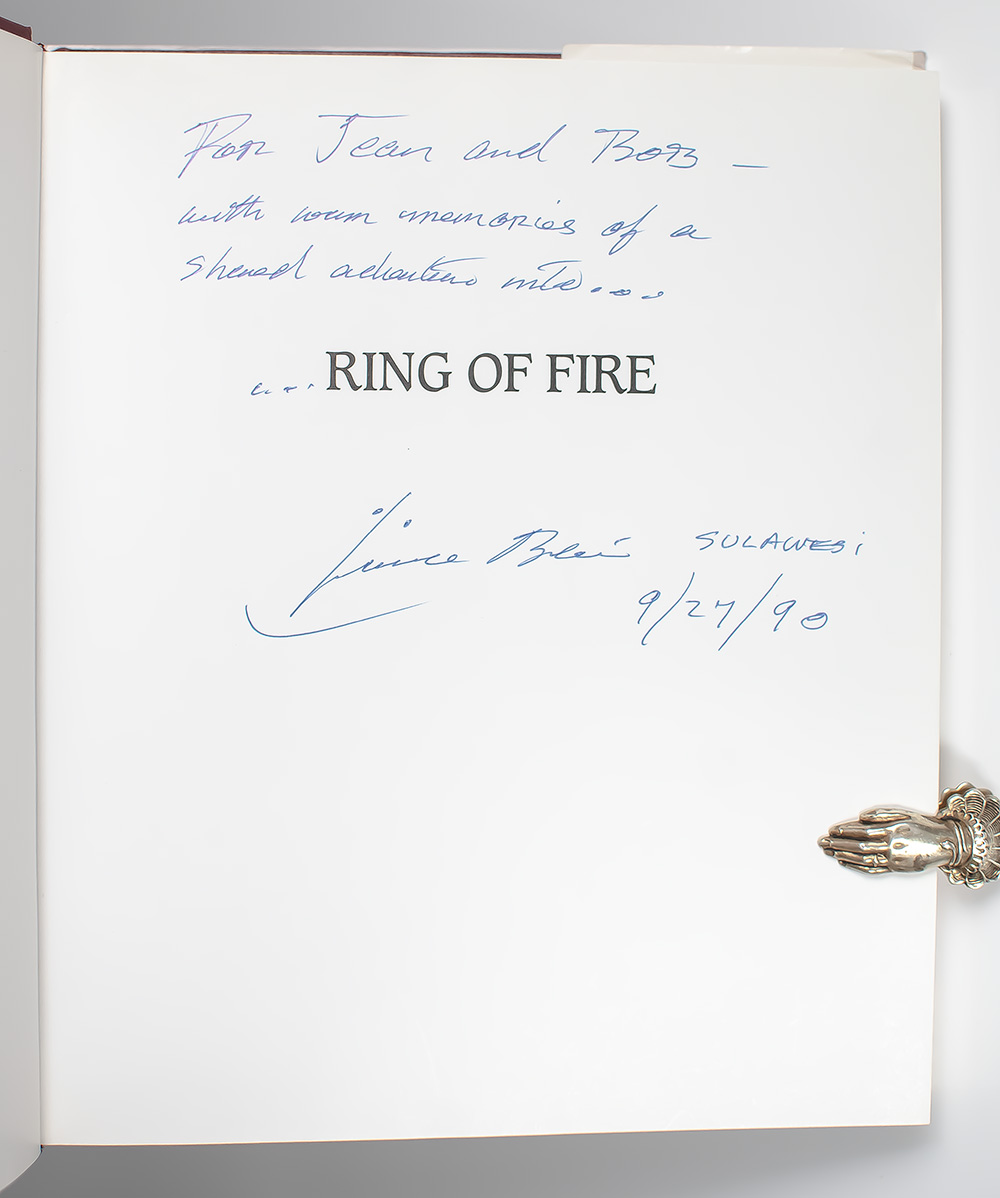 For Jean and Bob —
with warm memories of a
shared adventure into....
.... RING OF FIRE
Lawrence Blair SULAWESi
9/27/90